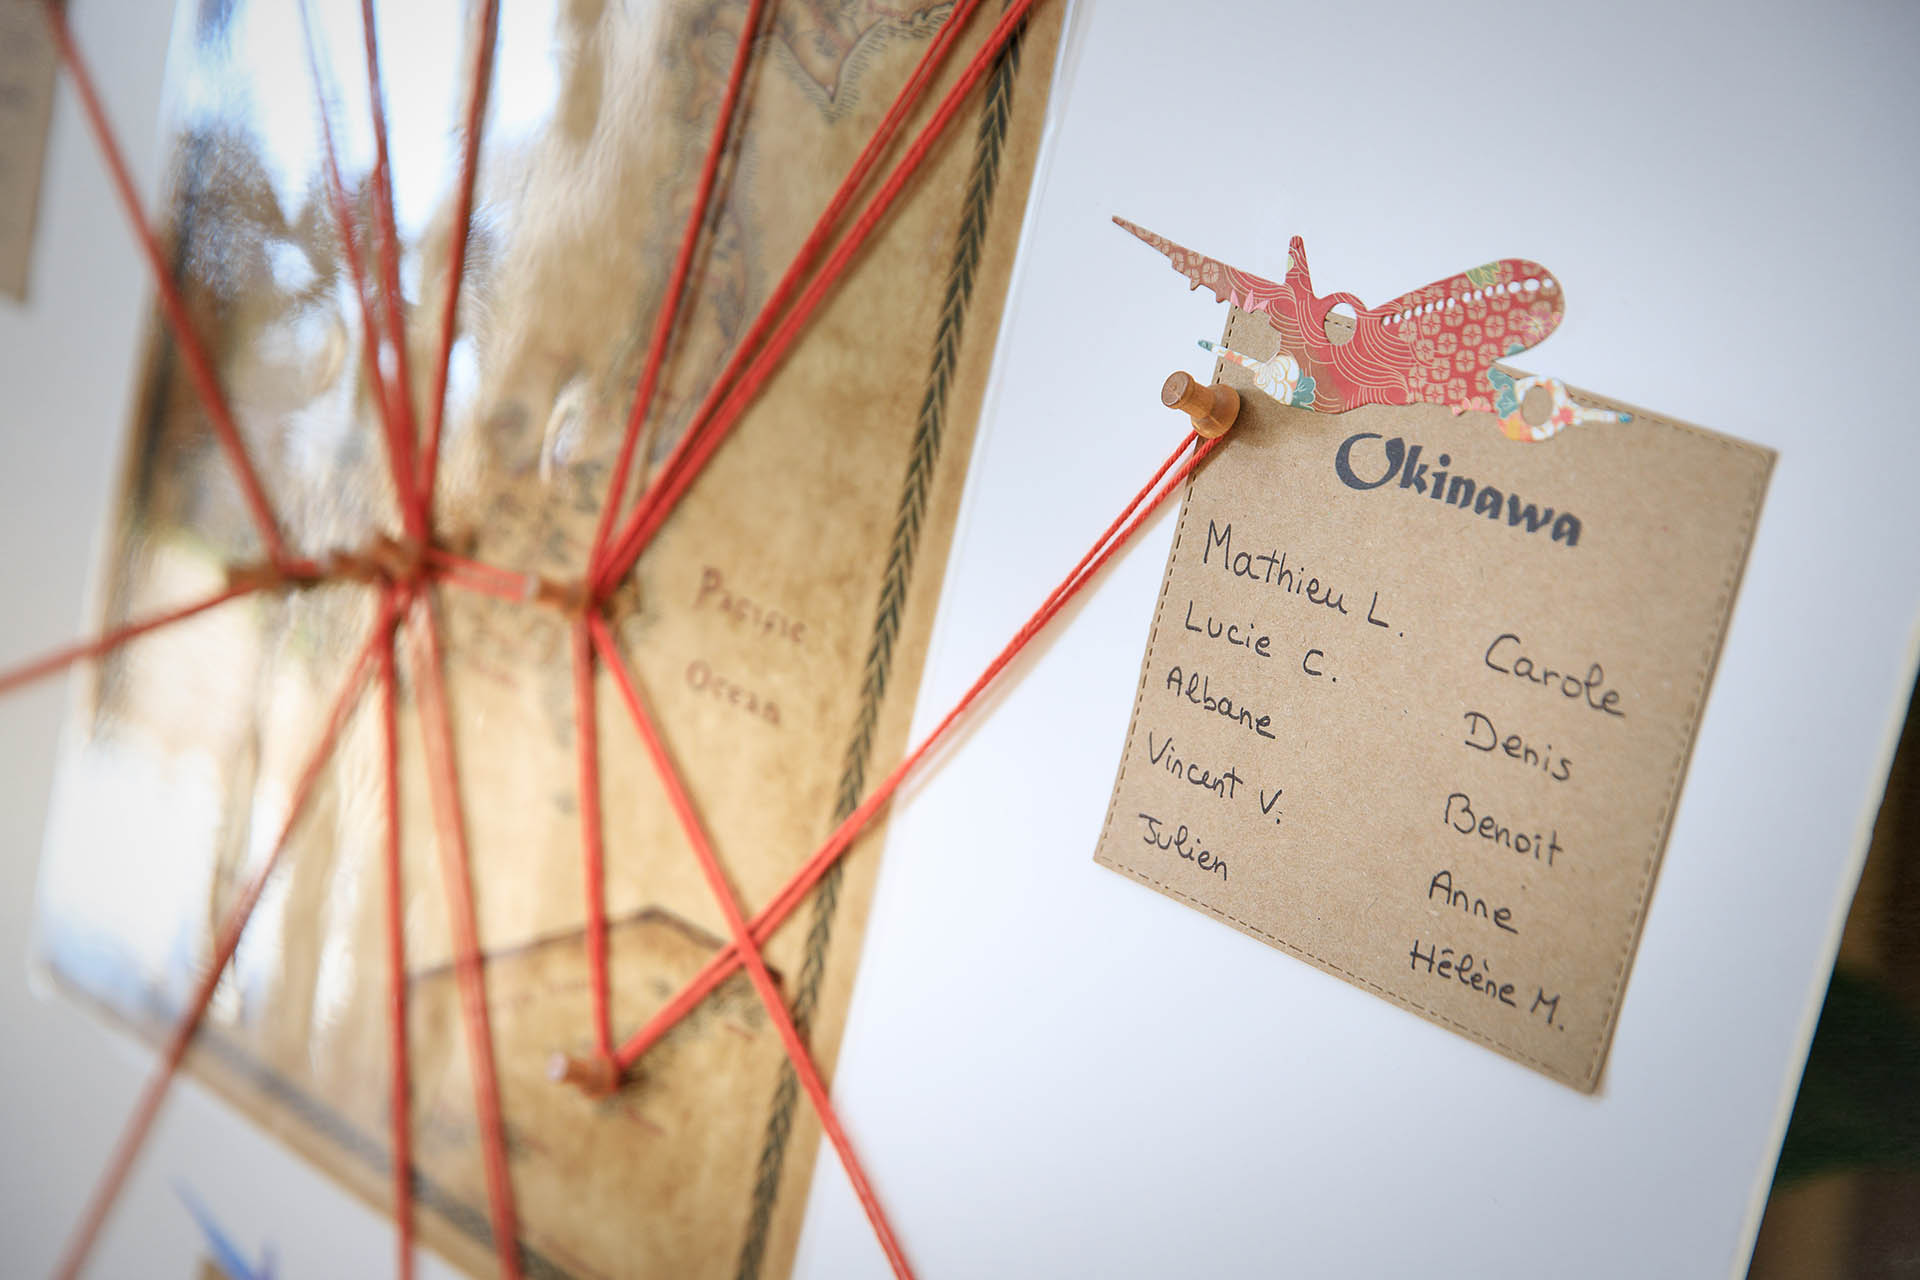 Okinawa
Mathieu L.
Lucie C.
Albane
Vincent V.
Julien
Carole
Denis
Benoit
Anne
Hélène M.
Pacific
Ocean